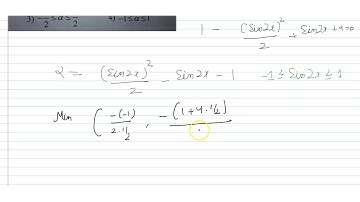 3) -—/2 ≤ a ≤ —/2 4) -1 ≤ a ≤ 1
1 - (Sin2x)²/2 + Sin2x + a = 0
a = (Sin2x)²/2 - Sin2x - 1 -1 ≤ Sin2x ≤ 1
Min ( -(-1)/2·1/2 , -(1+4·1/2)/